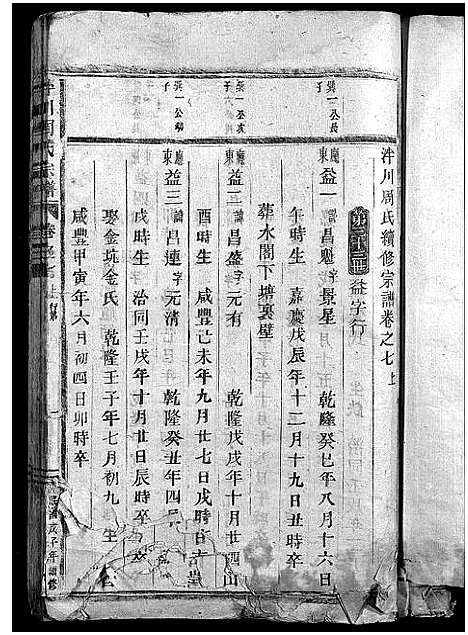 泮川周氏續修宗譜卷之七上
第三十三世 益字行
巽一公長子
廳東 益一 諱昌魁字景星 乾隆癸巳年八月十六日
午時生 嘉慶戊辰年十二月十九日丑時卒
葬水閣下塘裏壁
巽一公次子
廳東 益二 諱昌盛字元有 乾隆戊戌年十月廿四
酉時生 咸豐己未年九月廿七日戌時
巽一公
廳東 益三 諱昌連字元清 乾隆癸丑年四月
戌時生 治同壬戌年十月廿日辰時卒
娶金坑金氏 乾隆壬子年七月初九 生
咸豐甲寅年六月初四日卯時卒
川周氏宗譜